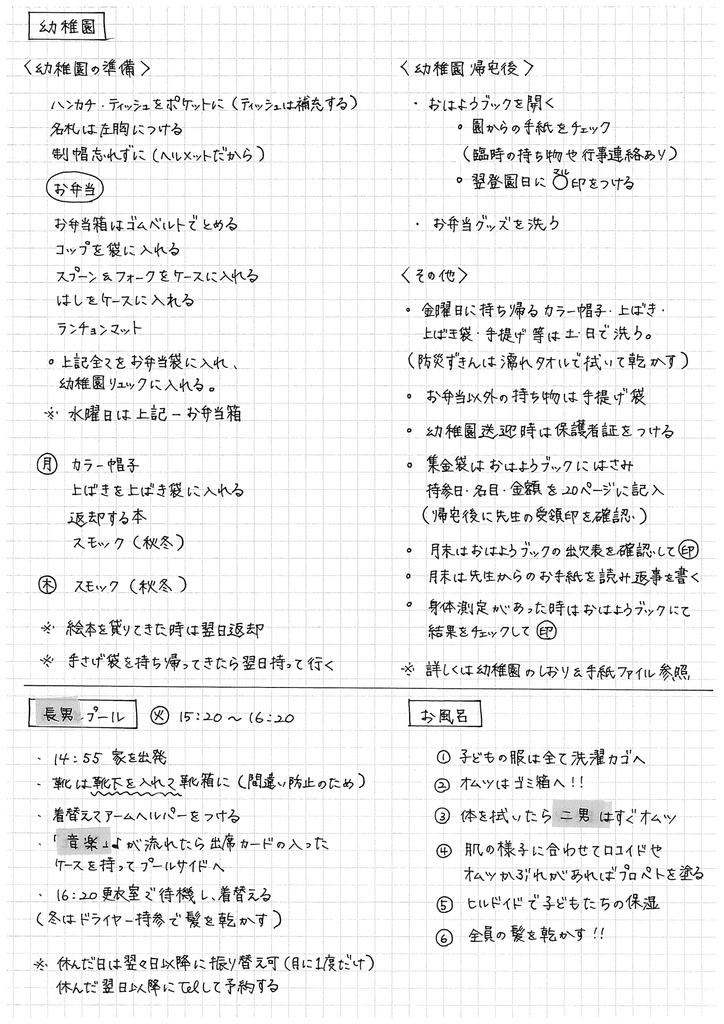 幼稚園
〈幼稚園の準備〉
ハンカチ・ティッシュをポケットに（ティッシュは補充する）
名札は左胸につける
制帽忘れずに（ヘルメットだから）
お弁当
お弁当箱はゴムベルトでとめる
コップを袋に入れる
スプーン&フォークをケースに入れる
はしをケースに入れる
ランチョンマット
○上記全てをお弁当袋に入れ、
幼稚園リュックに入れる。
※ 水曜日は上記－お弁当箱
㊊ カラー帽子
上ばきを上ばき袋に入れる
返却する本
スモック（秋冬）
㊍ スモック（秋冬）
※ 絵本を貸りてきた時は翌日返却
※ 手さげ袋を持ち帰ってきたら翌日持って行く
〈幼稚園 帰宅後〉
・おはようブックを開く
○園からの手紙をチェック
（臨時の持ち物や行事連絡あり）
○翌登園日に○印をつける
マル
・お弁当グッズを洗う
〈その他〉
○金曜日に持ち帰るカラー帽子・上ばき・
上ばき袋・手提げ等は土・日で洗う。
（防災ずきんは濡れタオルで拭いて乾かす）
○お弁当以外の持ち物は手提げ袋
○幼稚園送迎時は保護者証をつける
○集金袋はおはようブックにはさみ
持参日・名目・金額を20ページに記入
（帰宅後に先生の受領印を確認）
○月末はおはようブックの出欠表を確認して㊞
○月末は先生からのお手紙を読み返事を書く
○身体測定があった時はおはようブックにて
結果をチェックして㊞
※ 詳しくは幼稚園のしおり&手紙ファイル参照
長男プール ㊋ 15:20～16:20
・14:55 家を出発
・靴は靴下を入れて靴箱に（間違い防止のため）
・着替えてアームヘルパーをつける
・「音楽」♪が流れたら出席カードの入った
ケースを持ってプールサイドへ
・16:20更衣室で待機し、着替える
（冬はドライヤー持参で髪を乾かす）
※ 休んだ日は翌々日以降に振り替え可（月に1度だけ）
休んだ翌日以降にtelして予約する
お風呂
① 子どもの服は全て洗濯カゴへ
② オムツはゴミ箱へ!!
③ 体を拭いたら二男はすぐオムツ
④ 肌の様子に合わせてロコイドや
オムツかぶれがあればプロペトを塗る
⑤ ヒルドイドで子どもたちの保湿
⑥ 全員の髪を乾かす!!